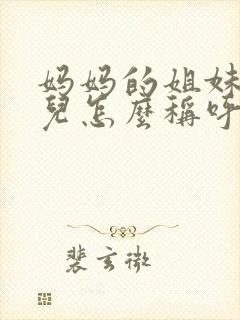 妈妈的姐妹
兒怎麼稱呼
裴玄微